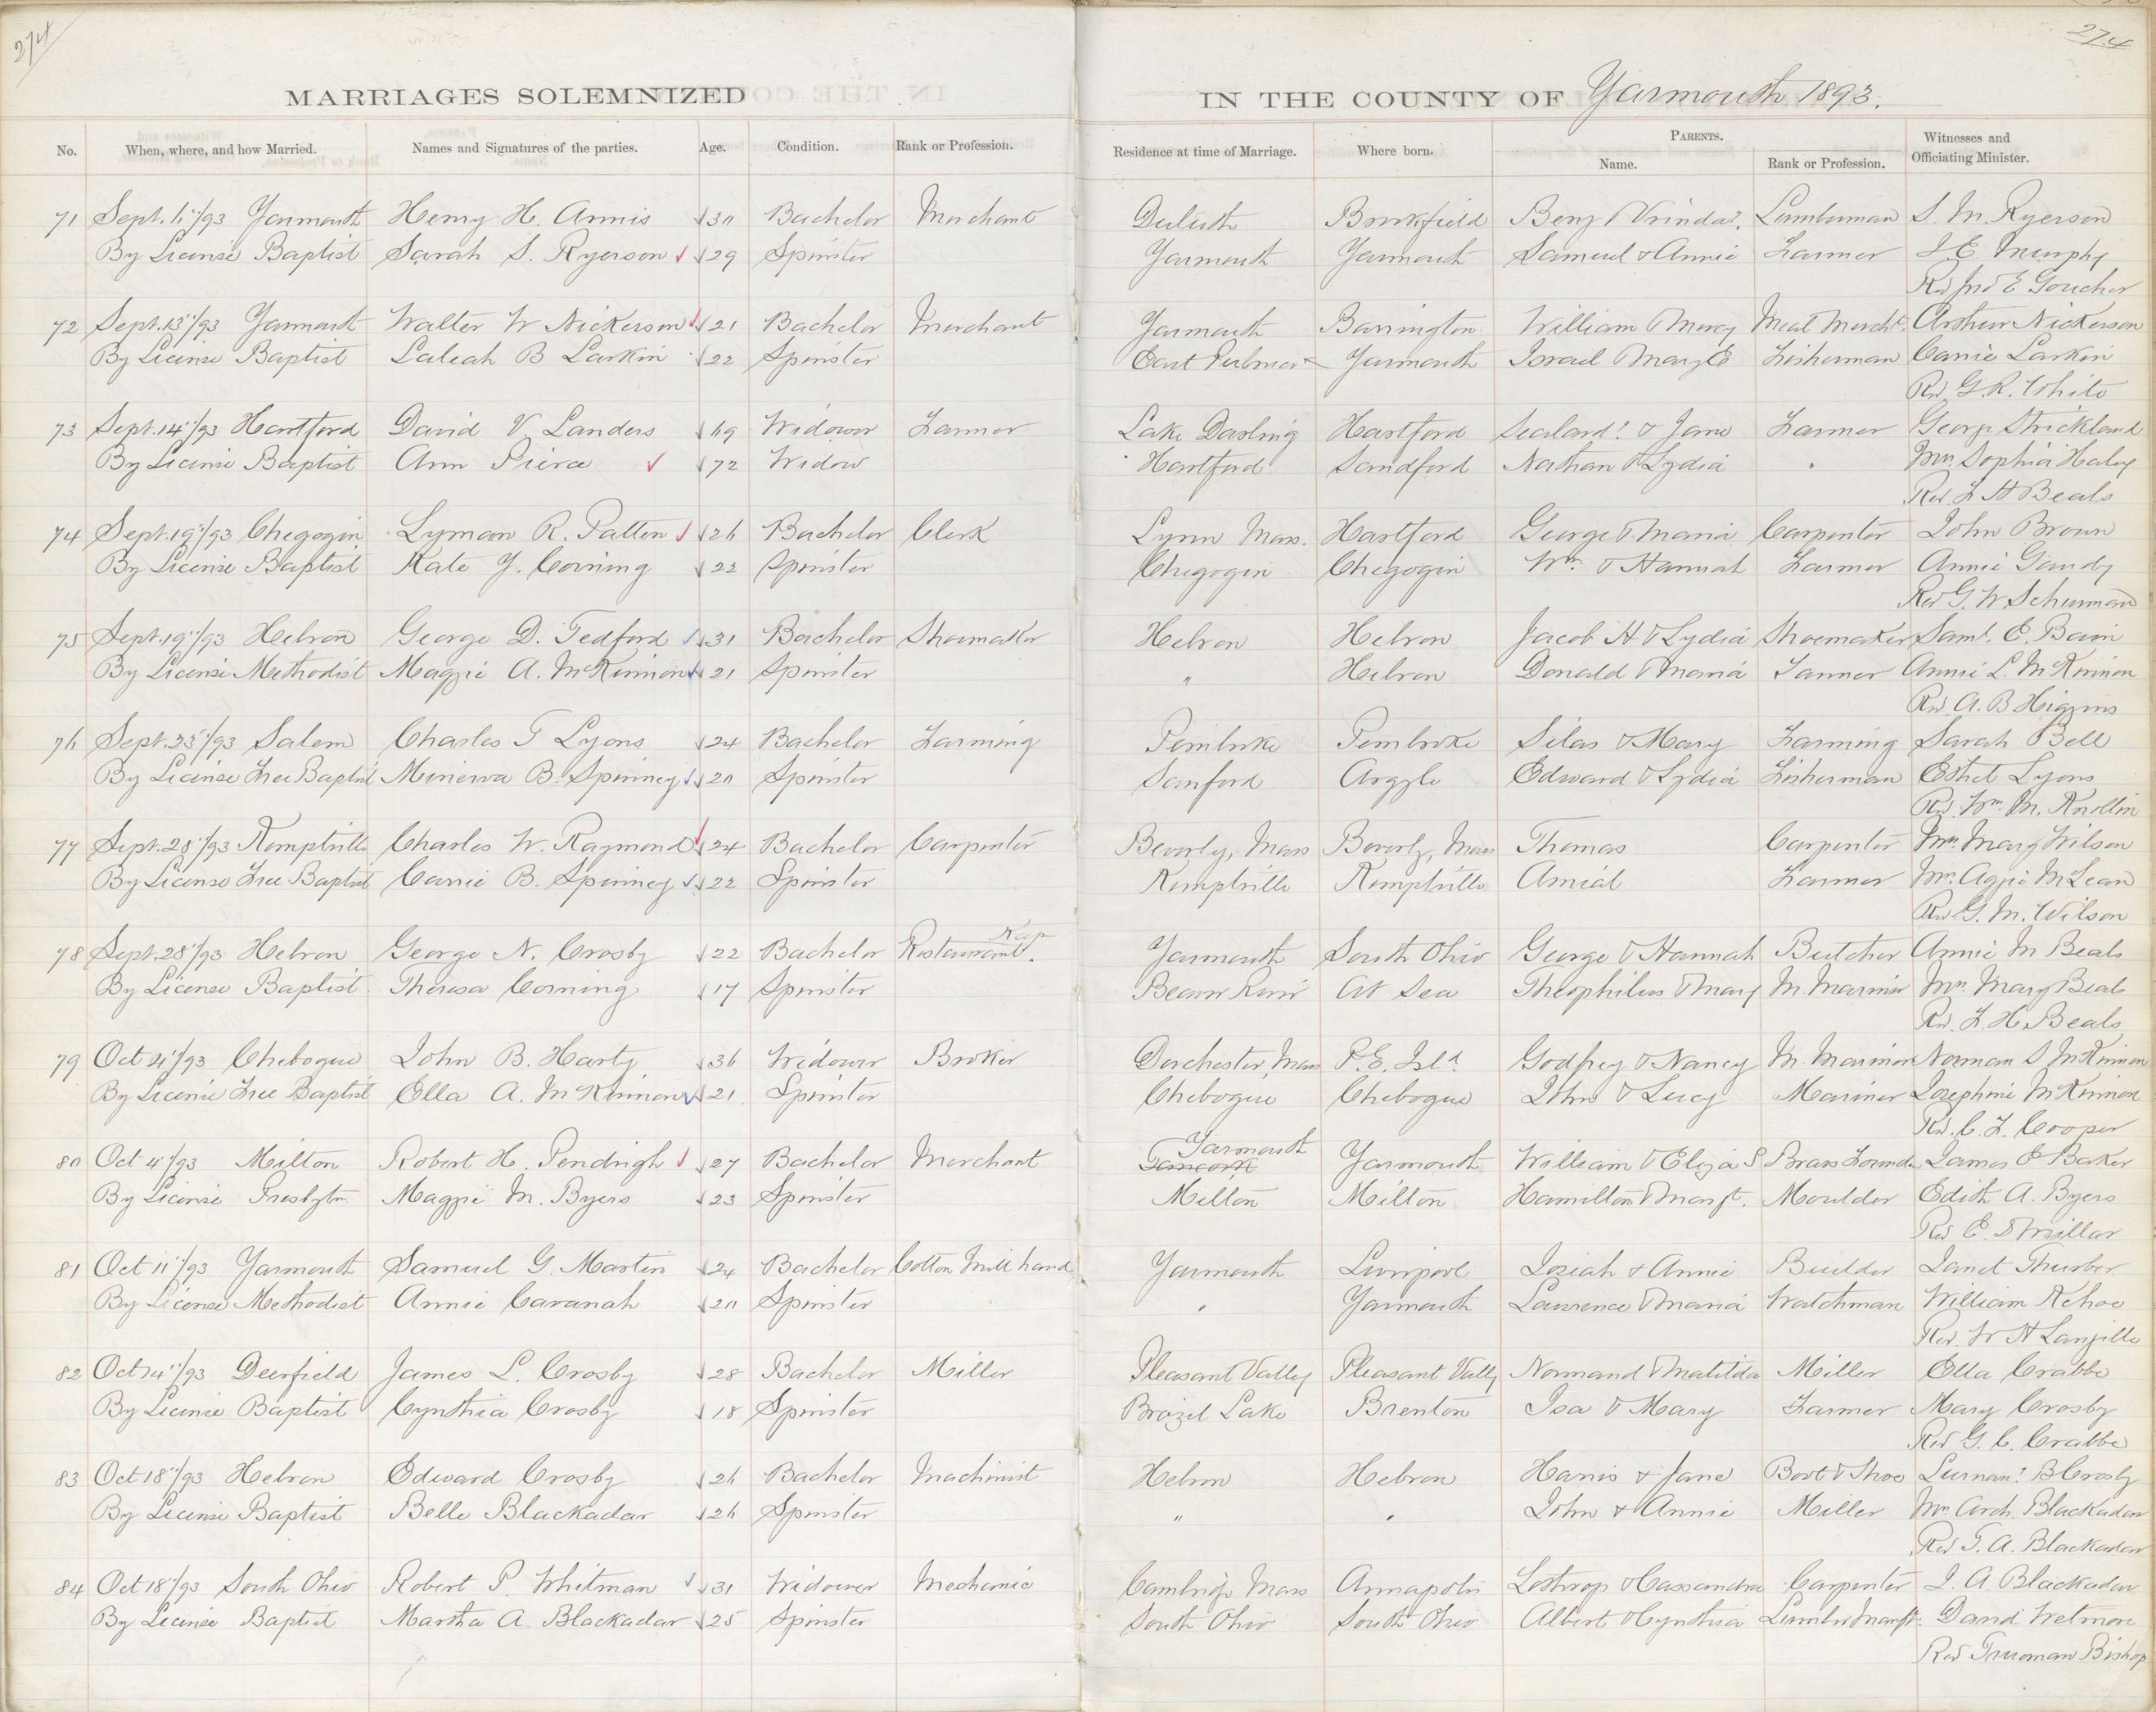 274
274
MARRIAGES SOLEMNIZED IN THE COUNTY OF Yarmouth 1893.
No. When, where, and how Married. Names and Signatures of the parties. Age. Condition. Rank or Profession. Residence at time of Marriage. Where born. PARENTS. Name. Rank or Profession. Witnesses and Officiating Minister.
71 Sept. /93 Yarmouth Henry H. Annis 30 Bachelor Merchant Duluth Brookfield Benj & Lumberman S. M. Ryerson
By License Baptist Sarah S. Ryerson 29 Spinster Yarmouth Yarmouth Samuel & Annie Farmer J. E. Murphy
Rev Jno E Goucher
72 Sept. 13"/93 Yarmouth Walter W Nickerson 21 Bachelor Merchant Yarmouth Barrington William & Mercy Meat Mercht. Arthur Nickerson
By License Baptist Laleah B Larkin 22 Spinster East Yarmouth Israel & Mary E Fisherman Carrie Larkin
Rev. G. R. White
73 Sept. 14"/93 Hartford David V. Landers 69 Widower Farmer Lake Darling Hartford Sealand? & Jane Farmer George Strickland
By License Baptist Ann Pierce 72 Widow Hartford Sandford Nathan & Lydia " Mrs. Sophia Haley
Rev F H Beals
74 Sept. 19"/93 Chegogin Lyman R. Patten 26 Bachelor Clerk Lynn Mass. Hartford George & Maria Carpenter John Brown
By License Baptist Kate Y. Corning 22 Spinster Chegogin Chegogin Wm. & Hannah Farmer Annie Gandy
Rev G. W Schurman
75 Sept. 19"/93 Hebron George D. Tedford 31 Bachelor Shoemaker Hebron Hebron Jacob H & Lydia Shoemaker Saml. E. Bain
By License Methodist Maggie A. McKinnon 21 Spinster " Hebron Donald & Maria Farmer Annie L. McKinnon
Rev. A. B Higgins
76 Sept. 23"/93 Salem Charles T Lyons 24 Bachelor Farming Pembroke Pembroke Silas & Mary Farming Sarah Bell
By License Free Baptist Minerva B. Spinney 20 Spinster Sanford Argyle Edward & Lydia Fisherman Ethel Lyons
Rev. Wm. M. Knollin
77 Sept. 28"/93 Kemptville Charles W. Raymond 24 Bachelor Carpenter Beverly, Mass Beverly, Mass Thomas Carpenter Mrs. Mary Wilson
By License Free Baptist Carrie B. Spinney 22 Spinster Kemptville Kemptville Amial Farmer Mrs. Aggie McLean
Rev G. M. Wilson
78 Sept. 28"/93 Hebron George N. Crosby 22 Bachelor Restaurant Keep. Yarmouth South Ohio George & Hannah Butcher Annie M Beals
By License Baptist Theresa Corning 17 Spinster Beaver River At Sea Theophilus & Mary M. Mariner Mrs. Mary Beals
Rev. F. H. Beals
79 Oct 4"/93 Chebogue John B. Harty 36 Widower Broker Dorchester, Mass P. E. Isld. Godfrey & Nancy M. Mariner Norman S McKinnon
By License Free Baptist Ella A. McKinnon 21 Spinster Chebogue Chebogue John & Lucy Mariner Josephine McKinnon
Rev. C. F. Cooper
80 Oct 4"/93 Milton Robert H. Pendrigh 27 Bachelor Merchant Yarmouth Yarmouth William & Eliza S Brass Founder James E Baker
By License Presbytn. Maggie M. Byers 23 Spinster Milton Milton Hamilton & Margt. Moulder Edith A. Byers
Rev E. D Millar
81 Oct 11"/93 Yarmouth Samuel G. Martin 24 Bachelor Cotton Mill hand Yarmouth Liverpool Josiah & Annie Builder Janet Thurber
By License Methodist Annie Cavanah 20 Spinster " Yarmouth Lawrence & Maria Watchman William Kehoe
Rev. W H Langille
82 Oct 14"/93 Deerfield James L. Crosby 28 Bachelor Miller Pleasant Valley Pleasant Vally Normand & Matilda Miller Ella Crabbe
By License Baptist Cynthia Crosby 18 Spinster Brazil Lake Brenton Isa & Mary Farmer Mary Crosby
Rev G. C. Crabbe
83 Oct 18"/93 Hebron Edward Crosby 26 Bachelor Machinist Hebron Hebron Harris & Jane Boot & Shoe B Crosby
By License Baptist Belle Blackadar 26 Spinster " " John & Annie Miller Mrs. Arch. Blackadar
Rev T. A. Blackadar
84 Oct 18"/93 South Ohio Robert P. Whitman 31 Widower Mechanic Cambridge Mass Annapolis Lothrop & Cassandra Carpenter J. A. Blackadar
By License Baptist Martha A. Blackadar 25 Spinster South Ohio South Ohio Albert & Cynthia Lumber Manft. David Wetmore
Rev Trueman Bishop